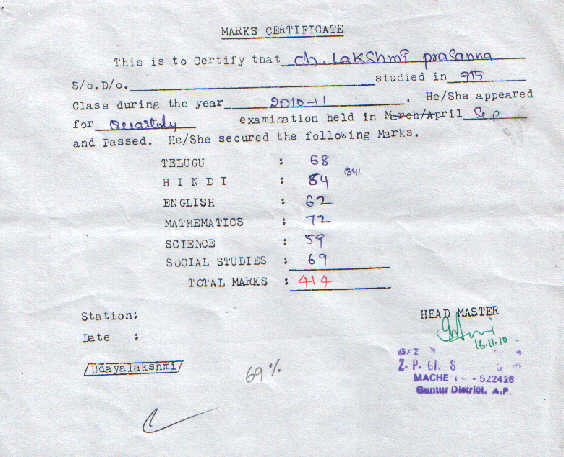 MARKS CERTIFICATE
This is to Certify that Ch. Lakshmi prasanna
S/o.D/o. studied in
Class during the year 2010-11 . He/She appeared
for Quartaly examination held in March/April Sep
and Passed. He/She secured the following Marks.
TELUGU : 68
HINDI : 84 84
ENGLISH : 62
MATHEMATICS : 72
SCIENCE : 59
SOCIAL STUDIES : 69
TOTAL MARKS : 414
Station:
Date :
HEAD MASTER
18.11.10
/Udayalakshmi/
69 %
Z. P. S
MACHE - 522426
Guntur District, A.P.